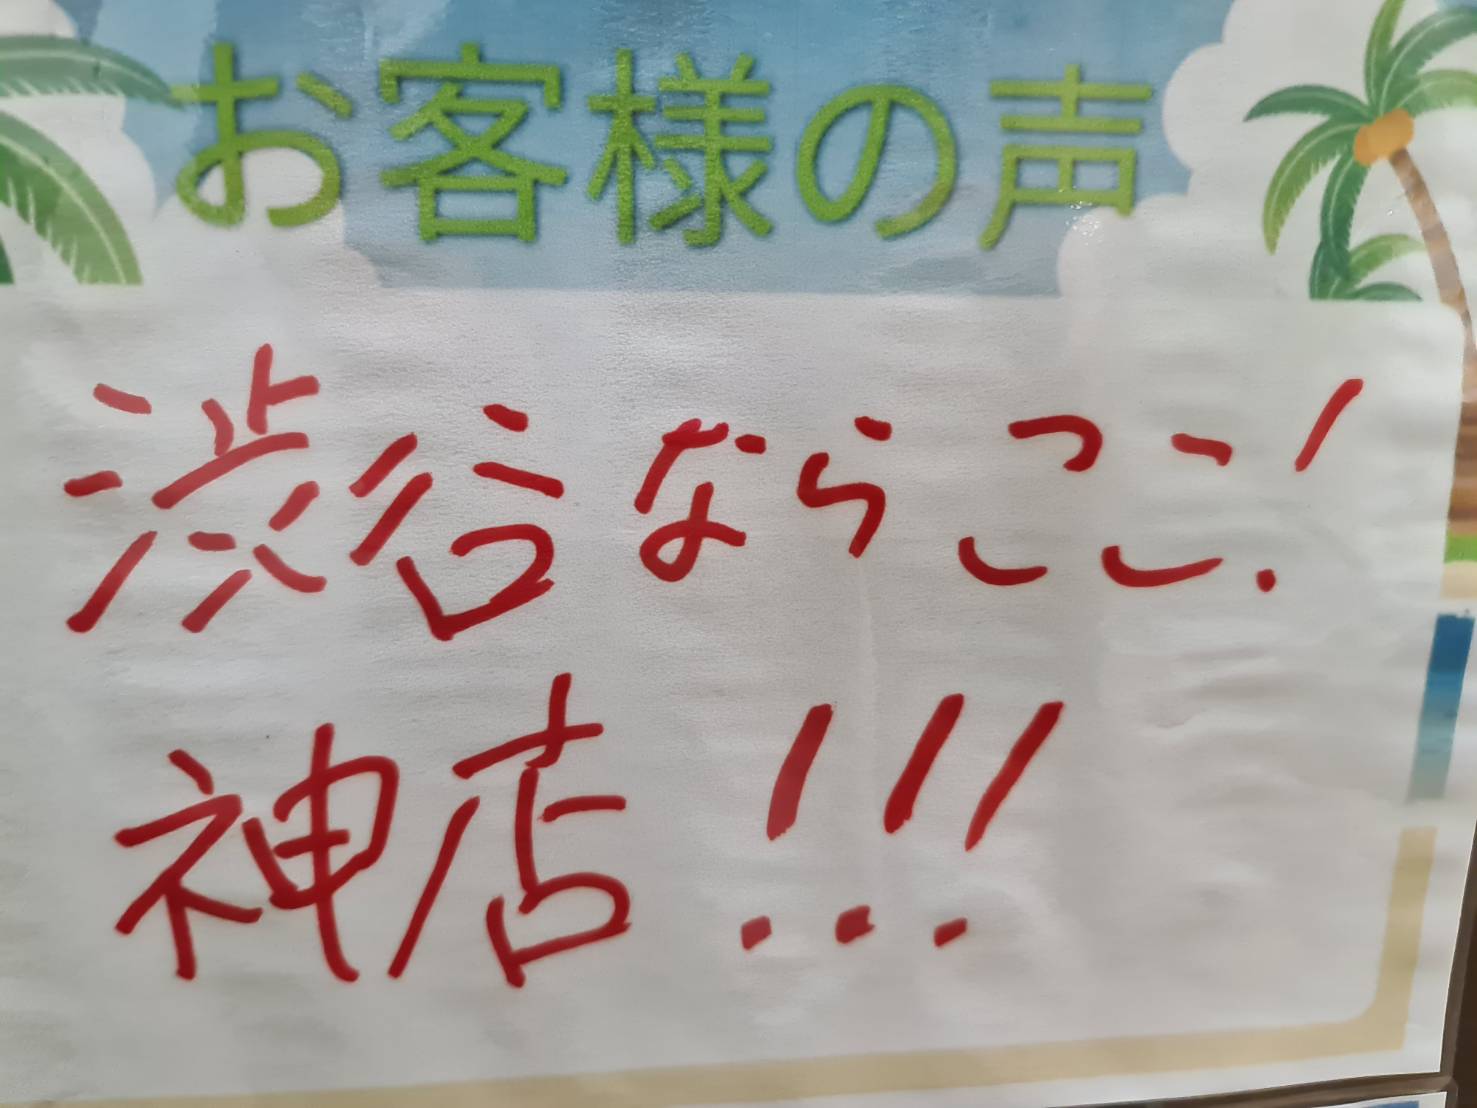 お客様の声
渋谷ならここ!
神店!!!